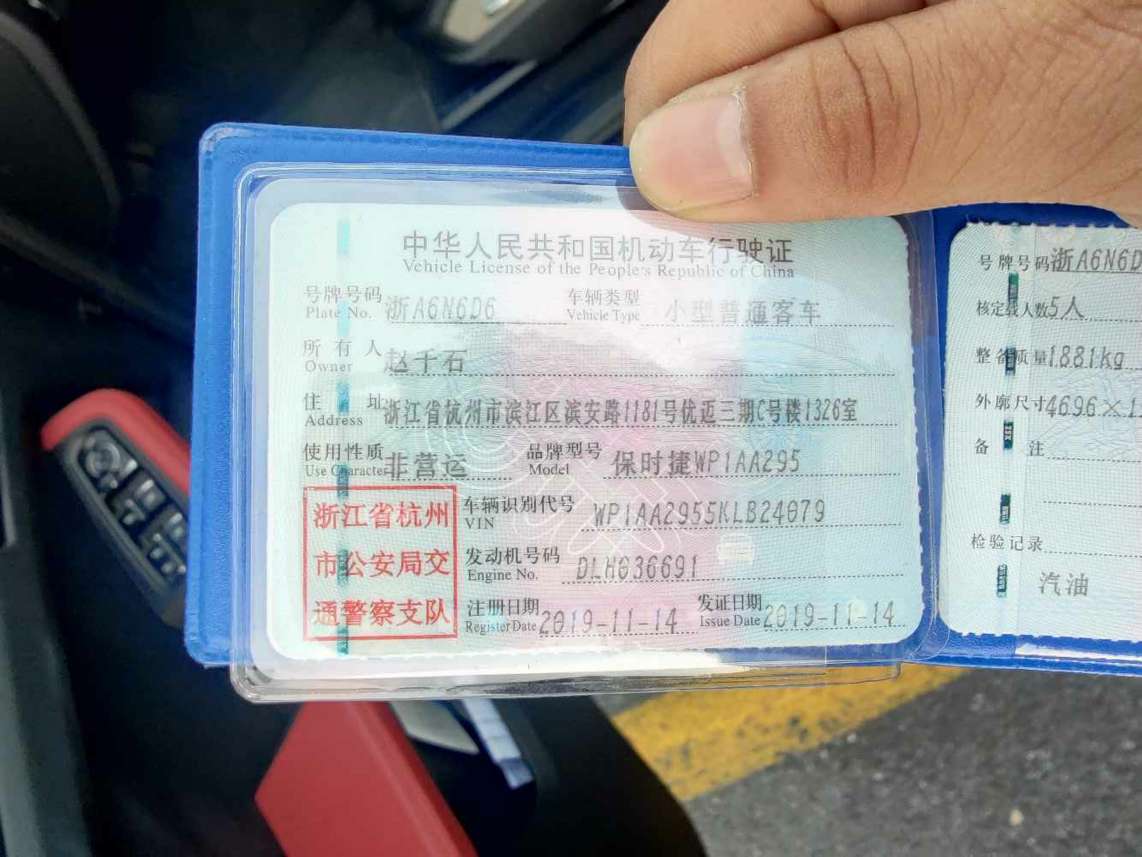 中华人民共和国机动车行驶证
Vehicle License of the People's Republic of China
号牌号码 浙A6N6D6 车辆类型 小型普通客车
Plate No. Vehicle Type
所有人 赵千石
Owner
住址 浙江省杭州市滨江区滨安路1181号优迈三期C号楼1326室
Address
使用性质 非营运 品牌型号 保时捷WP1AA295
Use Character Model
浙江省杭州
市公安局交
通警察支队
车辆识别代号 WP1AA2955KLB24079
VIN
发动机号码 DLH636691
Engine No.
注册日期 2019-11-14 发证日期 2019-11-14
Register Date Issue Date
号牌号码 浙A6N6D
核定载人数 5人
整备质量 1881kg
外廓尺寸 4696×1
备注
检验记录
汽油